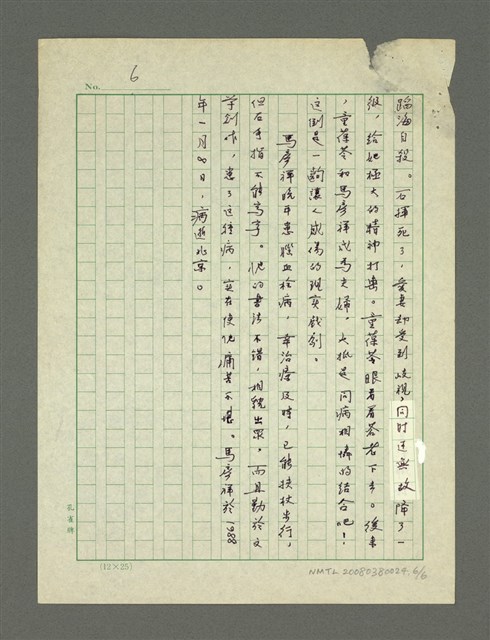 No. 6
蹈海自殺。石揮死了,愛妻却受到歧視,同时还無故降了一
級,給她極大的精神打击。童葆苓眼看着苍老下去。後来
,童葆苓和馬彦祥成为夫婦,大抵是同病相憐的结合吧!
这倒是一齣讓人感傷的现实戲剧。
馬彦祥晚年患腦血栓病,幸治療及时,已能扶杖步行,
但右手指不能寫字。他的書法不错,相貌出眾。而且勤於文
学創作,患了这種病,实在使他痛苦不堪。馬彦祥於1988
年一月8日,病逝北京。
孔雀牌
(12×25)
NMTL 20080380024, 6/6